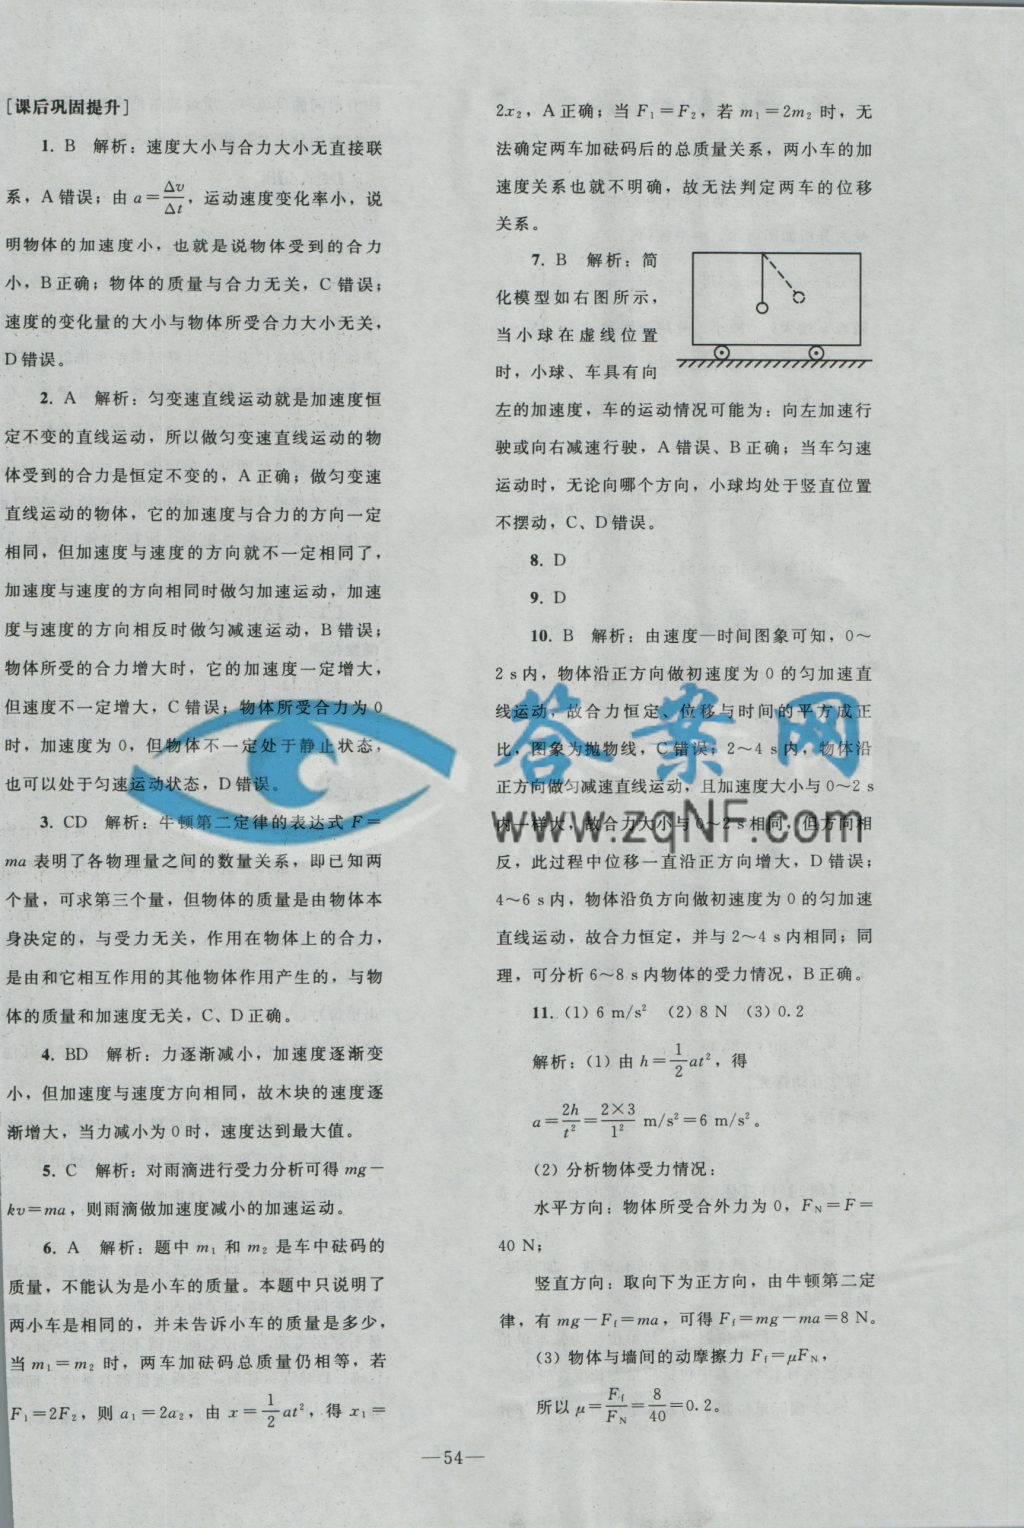 [课后巩固提升]
1. B 解析：速度大小与合力大小无直接联
系，A错误；由 a=Δv/Δt，运动速度变化率小，说
明物体的加速度小，也就是说物体受到的合力
小，B正确；物体的质量与合力无关，C错误；
速度的变化量的大小与物体所受合力大小无关，
D错误。
2. A 解析：匀变速直线运动就是加速度恒
定不变的直线运动，所以做匀变速直线运动的物
体受到的合力是恒定不变的，A正确；做匀变速
直线运动的物体，它的加速度与合力的方向一定
相同，但加速度与速度的方向就不一定相同了，
加速度与速度的方向相同时做匀加速运动，加速
度与速度的方向相反时做匀减速运动，B错误；
物体所受的合力增大时，它的加速度一定增大，
但速度不一定增大，C错误；物体所受合力为0
时，加速度为0，但物体不一定处于静止状态，
也可以处于匀速运动状态，D错误。
3. CD 解析：牛顿第二定律的表达式 F=
ma 表明了各物理量之间的数量关系，即已知两
个量，可求第三个量，但物体的质量是由物体本
身决定的，与受力无关，作用在物体上的合力，
是由和它相互作用的其他物体作用产生的，与物
体的质量和加速度无关，C、D正确。
4. BD 解析：力逐渐减小，加速度逐渐变
小，但加速度与速度方向相同，故木块的速度逐
渐增大，当力减小为0时，速度达到最大值。
5. C 解析：对雨滴进行受力分析可得 mg−
kv=ma，则雨滴做加速度减小的加速运动。
6. A 解析：题中 m₁ 和 m₂ 是车中砝码的
质量，不能认为是小车的质量。本题中只说明了
两小车是相同的，并未告诉小车的质量是多少，
当 m₁=m₂ 时，两车加砝码总质量仍相等，若
F₁=2F₂，则 a₁=2a₂，由 x=1/2at²，得 x₁=
2x₂，A正确；当 F₁=F₂，若 m₁=2m₂ 时，无
法确定两车加砝码后的总质量关系，两小车的加
速度关系也就不明确，故无法判定两车的位移
关系。
7. B 解析：简
化模型如右图所示，
当小球在虚线位置
时，小球、车具有向
左的加速度，车的运动情况可能为：向左加速行
驶或向右减速行驶，A错误、B正确；当车匀速
运动时，无论向哪个方向，小球均处于竖直位置
不摆动，C、D错误。
8. D
9. D
10. B 解析：由速度—时间图象可知，0～
2 s内，物体沿正方向做初速度为0的匀加速直
线运动，故合力恒定、位移与时间的平方成正
比，图象为抛物线，C错误；2～4 s内，物体沿
正方向做匀减速直线运动，且加速度大小与0～2 s
内一样大，故合力大小与0～2 s相同，但方向相
反，此过程中位移一直沿正方向增大，D错误；
4～6 s内，物体沿负方向做初速度为0的匀加速
直线运动，故合力恒定，并与2～4 s内相同；同
理，可分析6～8 s内物体的受力情况，B正确。
11. (1) 6 m/s² (2) 8 N (3) 0.2
解析：(1) 由 h=1/2at²，得
a=2h/t²=2×3/1² m/s²=6 m/s²。
(2) 分析物体受力情况：
水平方向：物体所受合外力为0，F_N=F=
40 N；
竖直方向：取向下为正方向，由牛顿第二定
律，有 mg−F_f=ma，可得 F_f=mg−ma=8 N。
(3) 物体与墙间的动摩擦力 F_f=μF_N，
所以 μ=F_f/F_N=8/40=0.2。
—54—
答案网
www.zqNF.com